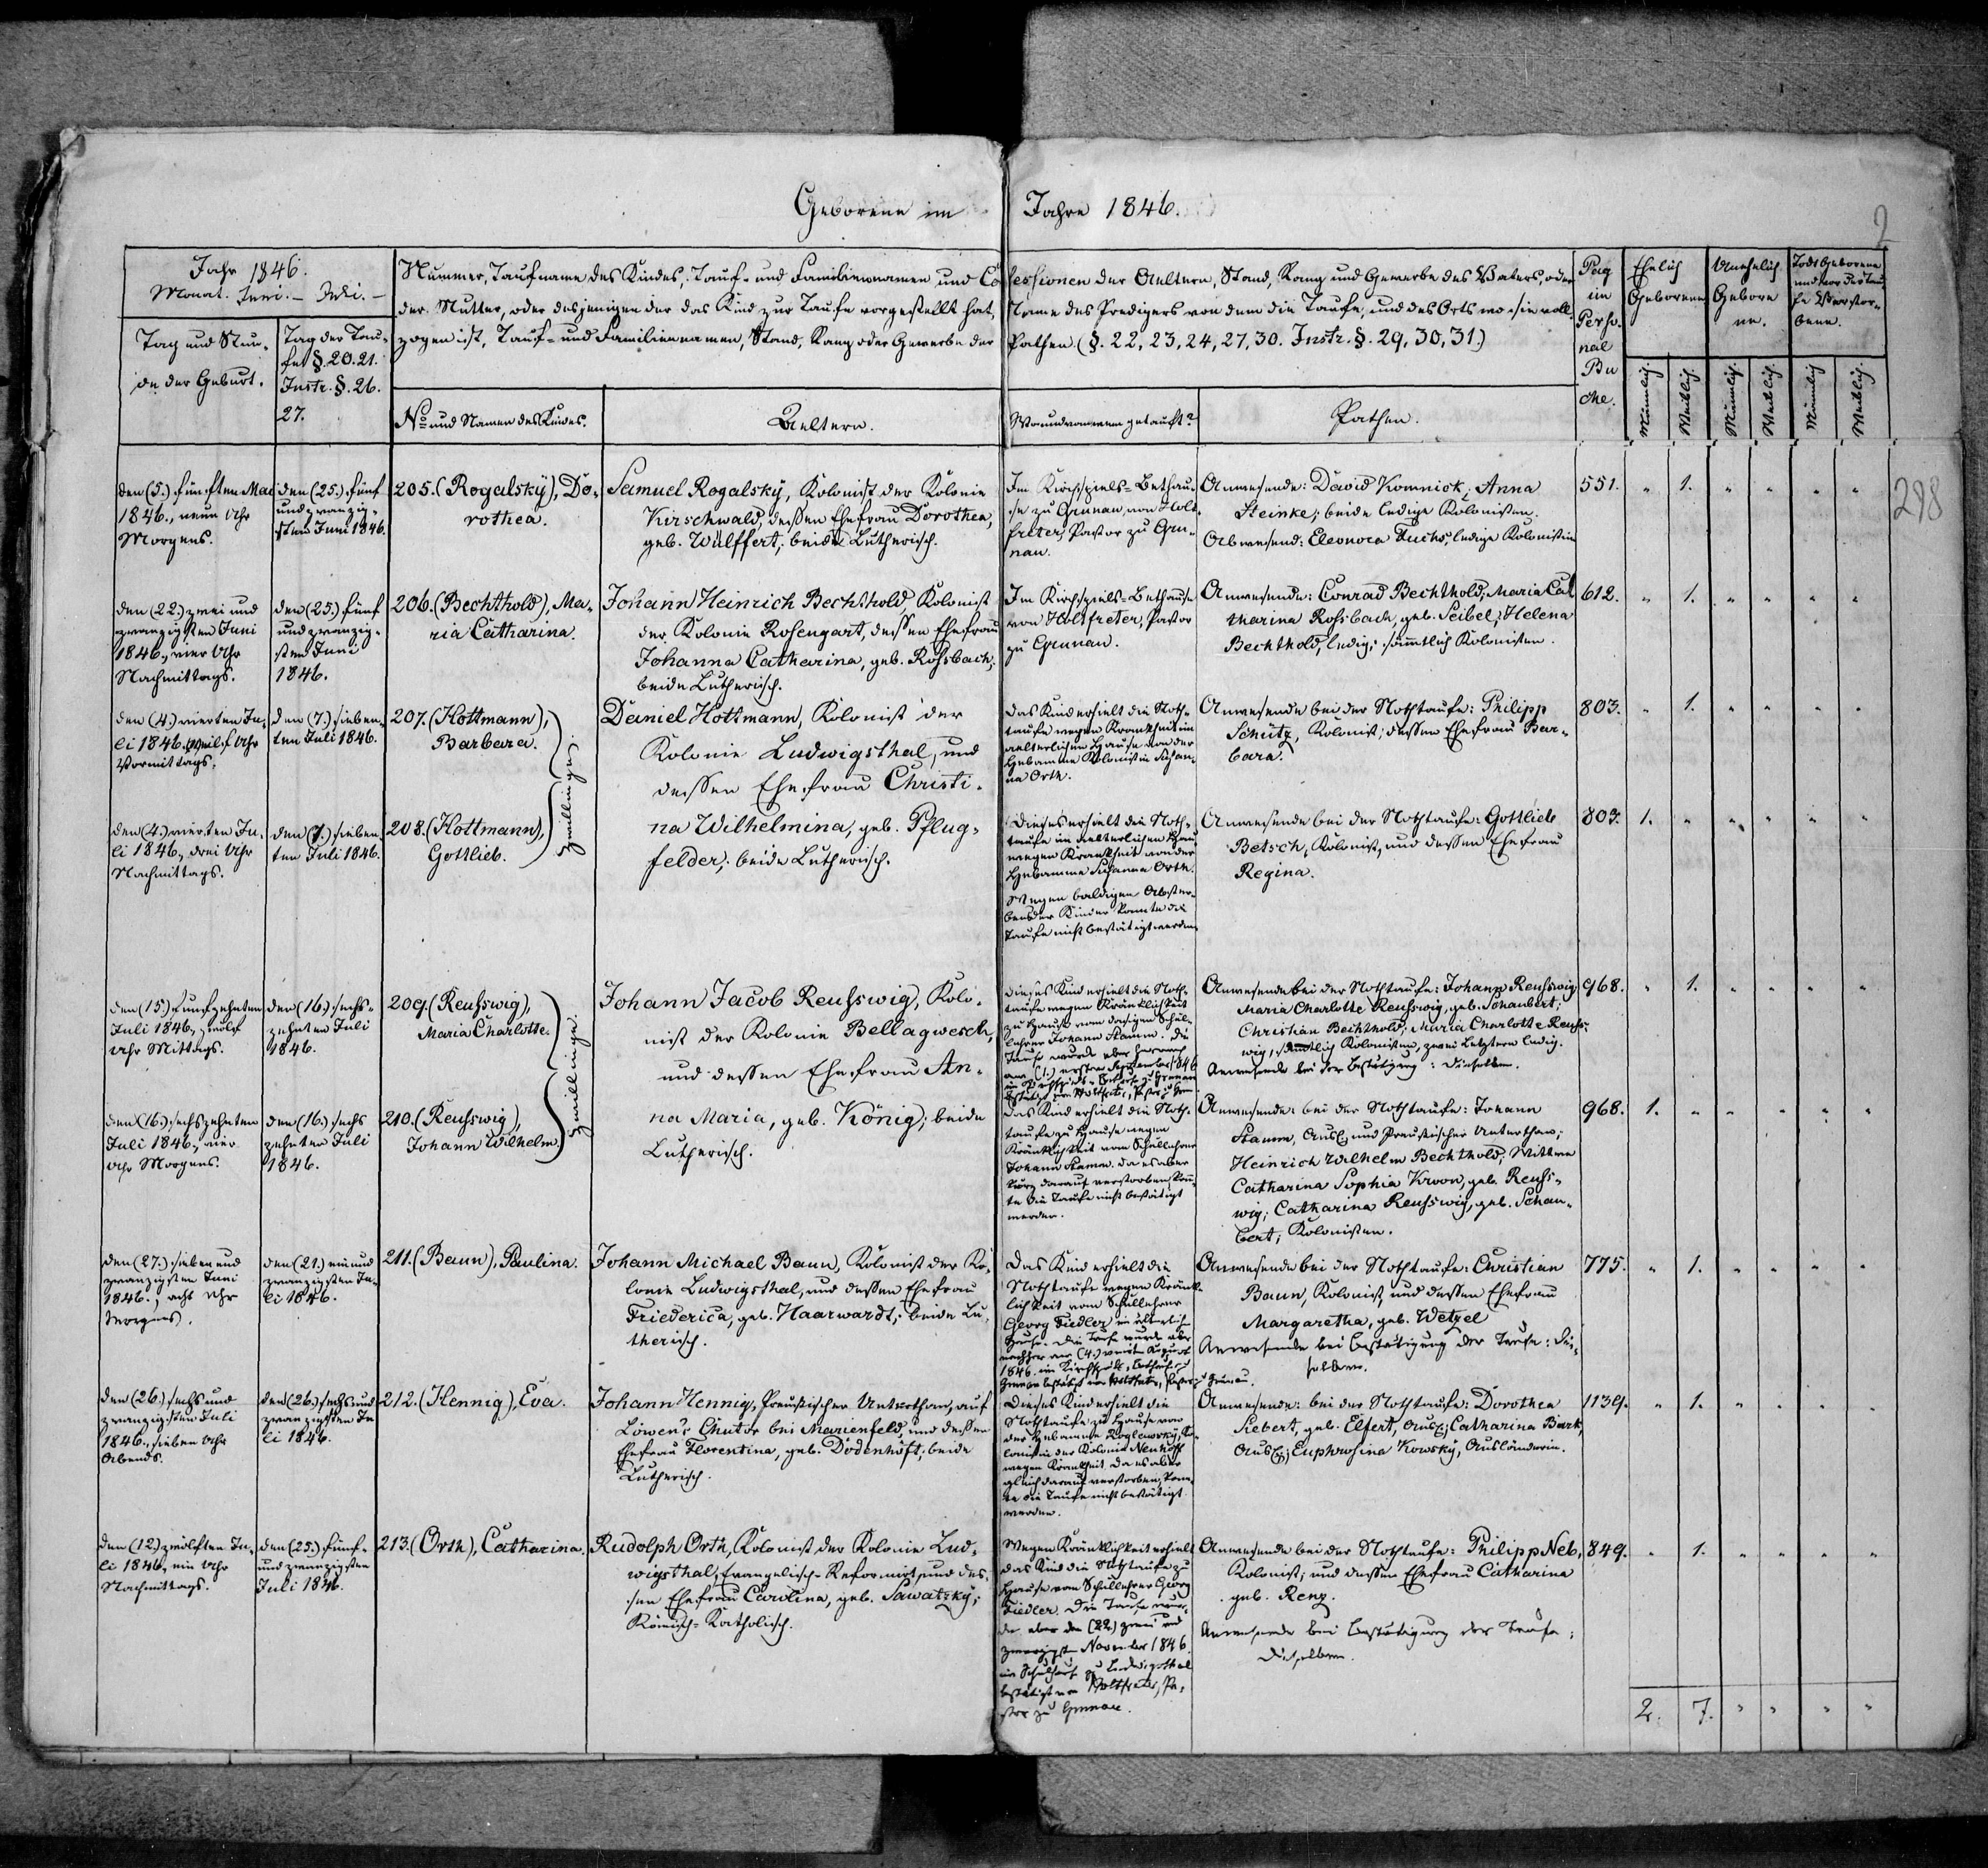 Geborene im Jahre 1846.
2
298
Jahr 1846.
Monat. Juni. – Juli. –
Tag und Stun-
de der Geburt.
Tag der Tau-
fe §. 20. 21.
Instr. §. 26.
27.
Nummer, Taufname des Kindes, Tauf- und Familiennamen und Co fessionen der Aeltern, Stand, Rang und Gewerbe des Vaters, oder
der Mutter, oder desjenigen der das Kind zur Taufe vorgestellt hat, Name des Predigers von dem die Taufe, und des Orts wo sie voll-
zogen ist, Tauf- und Familiennamen, Stand, Rang oder Gewerbe der Pathen. (§. 22, 23, 24, 27, 30. Instr. §. 29, 30, 31.)
No und Namen des Kindes.
Aeltern.
Wo und von wem getauft?
Pathen.
Pag
im
Perso-
nal
Bu
che.
Ehelich
Geborene
Unehelich
Gebore
ne.
Todt Geborene
und vor der Tau-
fe Verstor-
bene.
Männlich.
Weiblich.
Männlich.
Weiblich.
Männlich
Weiblich.
den (5.) fünften Mai
1846., neun Uhr
Morgens.
den (25.) fünf
und zwanzig-
sten Juni 1846.
205. (Rogalskÿ), Do-
rothea.
Samuel Rogalskÿ, Kolonist der Kolonie
Kirschwald, dessen Ehefrau Dorothea,
geb. Wulffert; beide Lutherisch.
Im Kirchspiels-Bethau-
se zu Grunau, von Holt-
freter, Pastor zu Gru-
nau.
Anwesende: David Komnick; Anna
Steinke; beide ledige Kolonisten.
Abwesend: Eleonora Fuchs, ledige Kolonistin
551. " 1. " " " "
den (22.) zwei und
zwanzigsten Juni
1846., vier Uhr
Nachmittags.
den (25.) fünf
und zwanzig-
sten Juni
1846.
206. (Bechthold), Ma-
ria Catharina.
Johann Heinrich Bechthold, Kolonist
der Kolonie Rosengart, dessen Ehefrau
Johanna Catharina, geb. Rossbach;
beide Lutherisch.
Im Kirchspiels-Bethause
von Holtfreter, Pastor
zu Grunau.
Anwesende: Conrad Bechthold; Maria Cat
tharina Rossbach, geb. Seibel; Helena
Bechthold, ledig; sämmtlich Kolonisten.
612. " 1. " " " "
den (4.) vierten Ju-
li 1846., Uhr
Vormittags.
den (7.) sieben-
ten Juli 1846.
207. (Hottmann),
Barbara.
Zwillinge.
Daniel Hottmann, Kolonist der
Kolonie Ludwigsthal, und
dessen Ehefrau Christi-
na Wilhelmina, geb. Pflug-
felder; beide Lutherisch.
Das Kind erhielt die Noth-
taufe wegen Krankheit im
aelterlichen Hause von der
Hebamme Kolonistin Susan-
na Orth.
Anwesende bei der Nothtaufe: Philipp
Schütz, Kolonist; dessen Ehefrau Bar-
bara.
803. " 1. " " " "
den (4.) vierten Ju-
li 1846., drei Uhr
Nachmittags.
den (7.) sieben-
ten Juli 1846.
208. (Hottmann),
Gottlieb.
Dieses erhielt die Noth-
taufe im aelterlichen Hau
wegen Krankheit von der
Hebamme Susanna Orth.
Wegen baldigen Abster-
bens der Kinder konnte die
Taufe nicht bestätigt werden
Anwesende bei der Nothtaufe: Gottlieb
Betsch, Kolonist, und dessen Ehefrau
Regina.
803. 1. " " " " "
den (15.) funfzehnten
Juli 1846., zwölf
Uhr Mittags.
den (16.) sechs-
zehnten Juli
1846.
209. (Reusswig),
Maria Charlotte.
Zwillinge.
Johann Jacob Reusswig, Kolo-
nist der Kolonie Bellagwesch,
und dessen Ehefrau An-
na Maria, geb. König; beide
Lutherisch.
Dieses Kind erhielt die Noth-
taufe wegen Kränklichkeit
zu Hause vom dasigen Schul-
lehrer Johann Stamm. Die
Taufe wurde aber hernach
am (1.) ersten September 1846
im Kirchspiels-Bethause zu Grunau
bestätigt von Holtfreter, Pastor zu Grun.
Anwesende bei der Nothtaufe: Johann Reusswig
Maria Charlotte Reusswig, geb. Schaubert;
Christian Bechthold; Maria Charlotte Reuss-
wig; sämtlich Kolonisten, zwei Letztern ledig.
Anwesende bei der Bestätigung: Dieselben.
968. " 1. " " " "
den (16.) sechszehnten
Juli 1846., vier
Uhr Morgens.
den (16.) sechs
zehnten Juli
1846.
210. (Reusswig),
Johann Wilhelm.
Das Kind erhielt die Noth-
taufe zu Hause wegen
Kränklichkeit vom Schullehrer
Johann Stamm. Da es aber
kurz darauf verstorben, konn-
te die Taufe nicht bestätigt
werden.
Anwesende bei der Nothtaufe: Johann
Stamm, Ausl. und Preussischer Unterthan;
Heinrich Wilhelm Bechthold; Wittwe
Catharina Sophia Kroon, geb. Reuss-
wig; Catharina Reusswig, geb. Schau-
bert; Kolonisten.
968. 1. " " " " "
den (27.) sieben und
zwanzigsten Juni
1846., acht Uhr
Morgens.
den (21.) ein und
zwanzigsten Ju-
li 1846.
211. (Baun), Paulina.
Johann Michael Baun, Kolonist der Ko-
lonie Ludwigsthal, und dessen Ehefrau
Friederica, geb. Haarwardt; beide Lu-
therisch.
Das Kind erhielt die
Nothtaufe wegen Kränk-
lichkeit vom Schullehrer
Georg Fiedler im älterlichen
Hause. Die Taufe wurde aber
nachher am (4.) vierten August
1846. im Kirchspiels-Bethause zu
Grunau bestätigt von Holtfreter, Pastor zu Grunau.
Anwesende bei der Nothtaufe: Christian
Baun, Kolonist, und dessen Ehefrau
Margaretha, geb. Wetzel
Anwesende bei Bestätigung der Taufe: Die-
selben.
775. " 1. " " " "
den (26.) sechs und
zwanzigsten Juli
1846., sieben Uhr
Abends.
den (26.) sechs und
zwanzigsten Ju
li 1846.
212. (Hennig), Eva.
Johann Hennig, Preussischer Unterthan, auf
Löwen's Chutor bei Marienfeld, und dessen
Ehefrau Florentina, geb. Dodenhöft; beide
Lutherisch.
Dieses Kind erhielt die
Nothtaufe zu Hause von
der Hebamme Koglewskÿ, Ko-
lonistin der Kolonie Neuhoff
wegen Krankheit. Da es aber
gleich darauf verstorben, konn-
te die Taufe nicht bestätigt
werden.
Anwesende: bei der Nothtaufe: Dorothea
Siebert, geb. Elfert, Ausl.; Catharina Bark,
Ausl.; Euphrosina Kowsky, Ausländerin.
1139. " 1. " " " "
den (12.) zwölften Ju-
li 1846., ein Uhr
Nachmittags.
den (25.) fünf-
und zwanzigsten
Juli 1846.
213. (Orth), Catharina.
Rudolph Orth, Kolonist der Kolonie Lud-
wigsthal, Evangelisch-Reformirt, und des-
sen Ehefrau Carolina, geb. Sawatzkÿ;
Römisch-Katholisch.
Wegen Kränklichkeit erhielt
das Kind die Nothtaufe zu
Hause vom Schullehrer Georg
Fiedler. Die Taufe wur-
de aber den (22.) zwei und
zwanzigsten November 1846.
im Schulhause zu Ludwigsthal
bestätigt von Holtfreter, Pa-
stor zu Grunau.
Anwesende bei der Nothtaufe: Philipp Neb,
Kolonist; und dessen Ehefrau Catharina
geb. Renz.
Anwesende bei Bestätigung der Taufe:
Dieselben.
849. " 1. " " " "
2. 7. " " " "